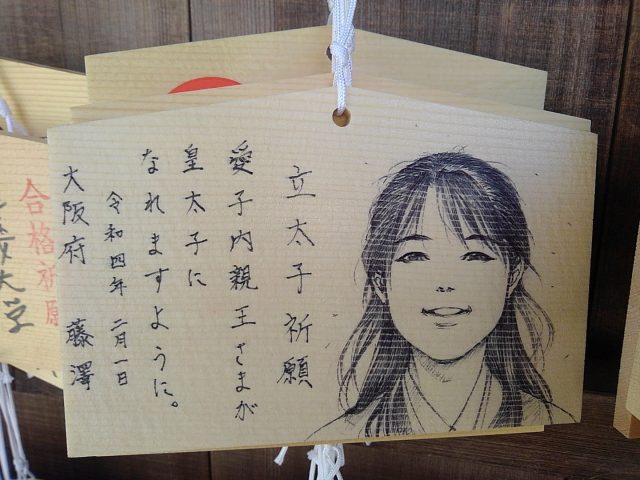 立太子祈願
愛子内親王さまが
皇太子に
なれますように。
令和四年 二月一日
大阪府 藤澤
合格祈願
大学